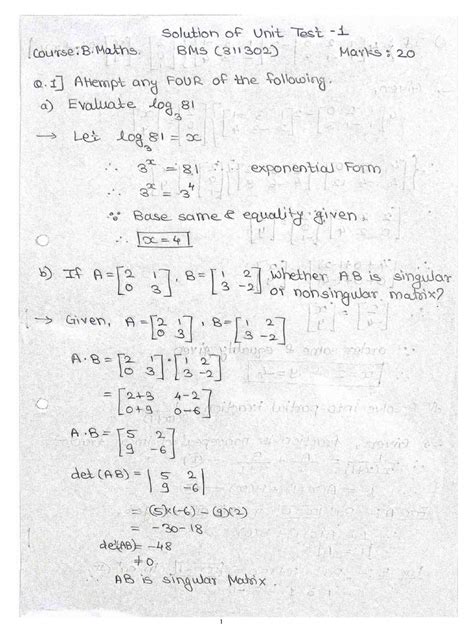 Solution of Unit Test -1
Course: B. Maths. BMS (311302) Marks: 20
Q.1] Attempt any FOUR of the following.
a) Evaluate log₃81
→ Let log₃81 = x
∴ 3^x = 81 ∵ exponential Form
∴ 3^x = 3^4
∵ Base same & equality given,
∴ x = 4
b) If A = [2 1; 0 3], B = [1 2; 3 -2], Whether AB is singular
or nonsingular matrix?
→ Given, A = [2 1; 0 3], B = [1 2; 3 -2]
A·B = [2 1; 0 3] * [1 2; 3 -2]
= [2+3 4-2; 0+9 0-6]
A·B = [5 2; 9 -6]
det (AB) = |5 2; 9 -6|
= (5)×(-6) - (9)(2)
= -30-18
det(AB) = -48
≠0
AB is singular Matrix.
1